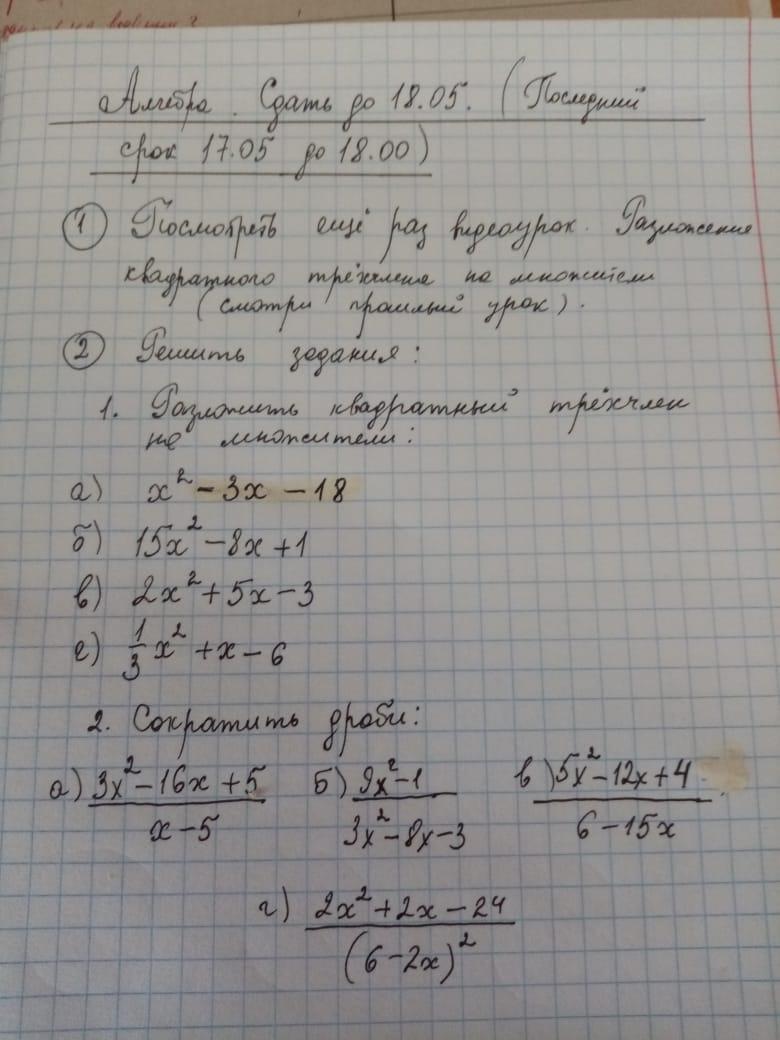 Алгебра. Сдать до 18.05. (Последний
срок 17.05 до 18.00)
① Посмотреть ещё раз видеоурок. Разложение
квадратного трёхчлена на множители
(смотри прошлый урок).
② Решить задания:
1. Разложить квадратный трёхчлен
на множители:
а) x² - 3x - 18
б) 15x² - 8x + 1
в) 2x² + 5x - 3
г) 1/3 x² + x - 6
2. Сократить дроби:
а) (3x² - 16x + 5)/(x - 5) б) (9x² - 1)/(3x² - 8x - 3) в) (5x² - 12x + 4)/(6 - 15x)
г) (2x² + 2x - 24)/(6 - 2x)²